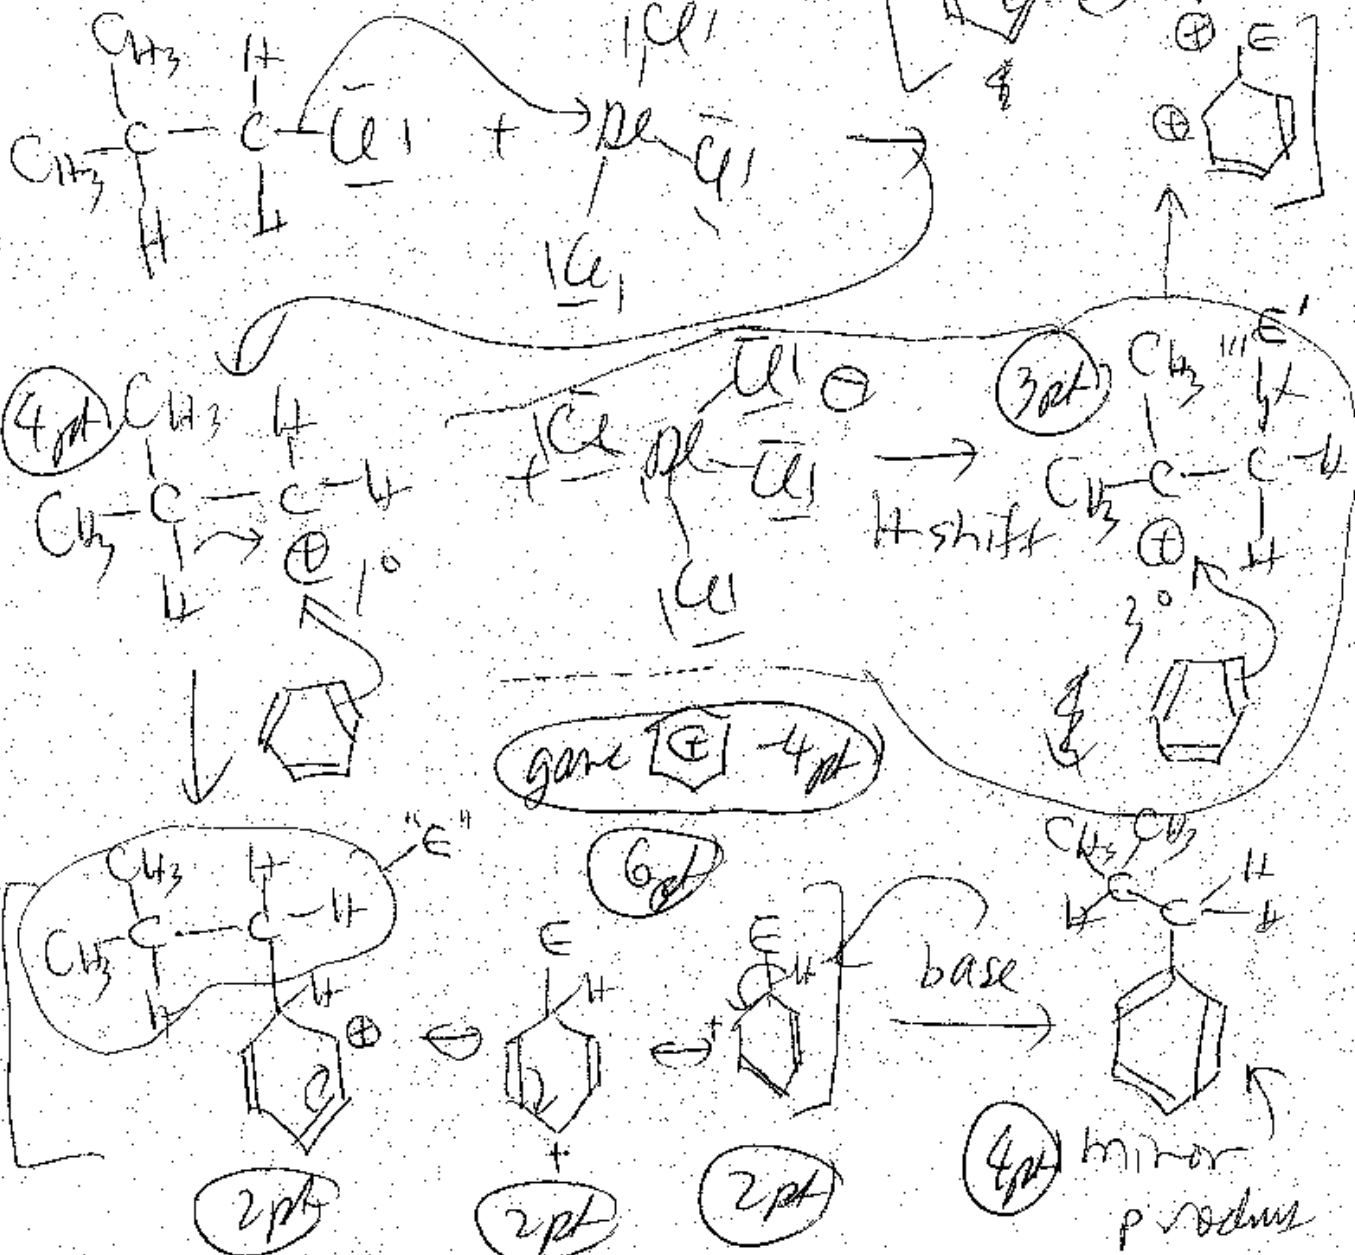 CH3 H |Cl|
CH3 - C - C - Cl| + Al - Cl| →
H H |Cl|
⊕ E
⊕
4pt CH3 H
CH3 - C - C - H
H ⊕ 1°
+ Cl Al Cl| ⊖
Cl|
|Cl|
→
H-shift
3pt CH3 "E"
H
CH3 - C - C - H
⊕ H
3°
gave ⊕ -4pt
6pt
"E"
CH3 H
CH3 - C - C - H
H H
⊕
E H
+
E H
+
base
CH3 CH3
C H
H C - H
2pt
2pt
2pt
4pt minor
product